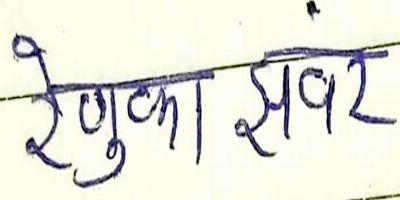 रेणुका झवंर